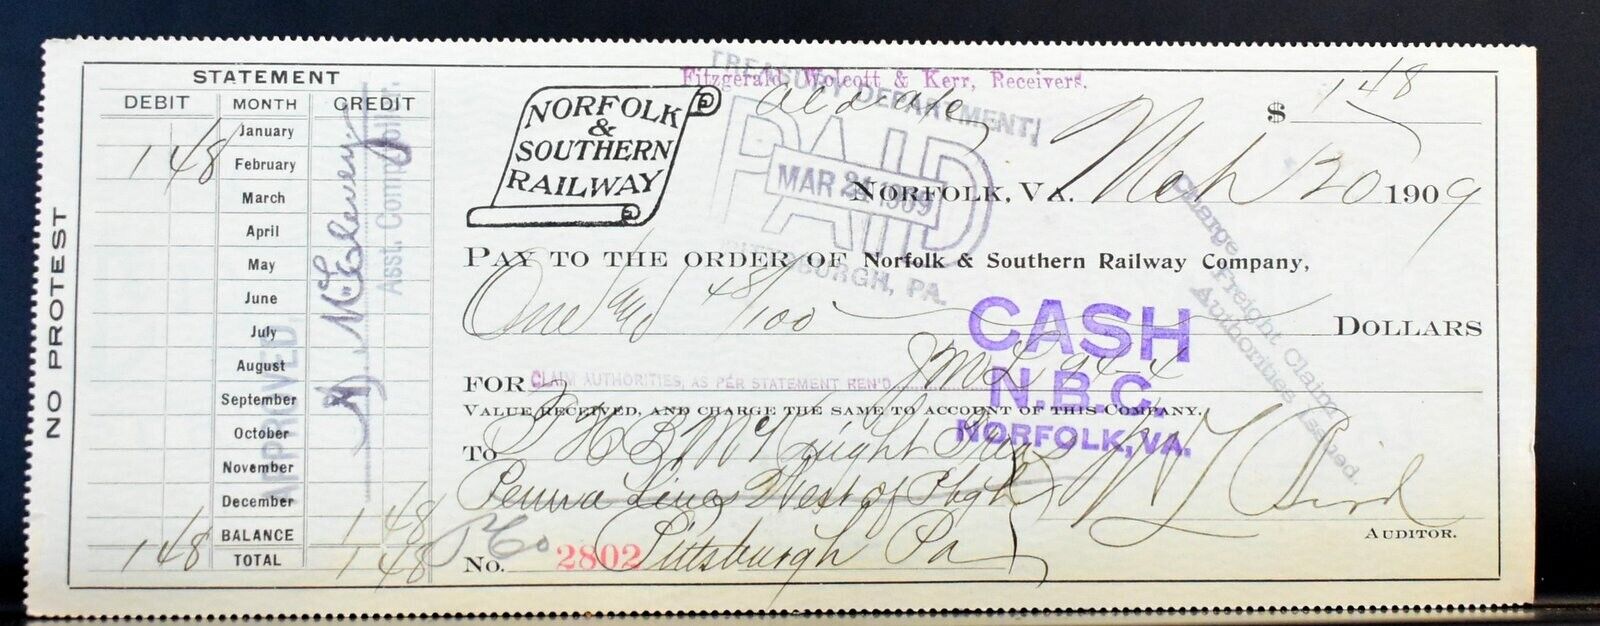 NO PROTEST
STATEMENT
DEBIT MONTH CREDIT
January
1 48 February
March
April
May
June
July
August
September
October
November
December
BALANCE 1 48
1 48 TOTAL 1 48
APPROVED
Asst. Comptroller.
NORFOLK
&
SOUTHERN
RAILWAY
Fitzgerald, Wolcott & Kerr, Receivers.
TREASURY DEPARTMENT
PAID
MAR 24 1909
PITTSBURGH, PA.
$ 1 48
NORFOLK, VA. Mch 20 1909
PAY TO THE ORDER OF Norfolk & Southern Railway Company,
One and 48/100 DOLLARS
CASH
N.B.C.
NORFOLK, VA.
Charge Freight Claim
Authorities Issued.
FOR CLAIM AUTHORITIES, AS PER STATEMENT REN'D
VALUE RECEIVED, AND CHARGE THE SAME TO ACCOUNT OF THIS COMPANY.
To T H B McKnight Treas
Penna Lines West of Pbgh
Pittsburgh Pa
AUDITOR.
No. 2802